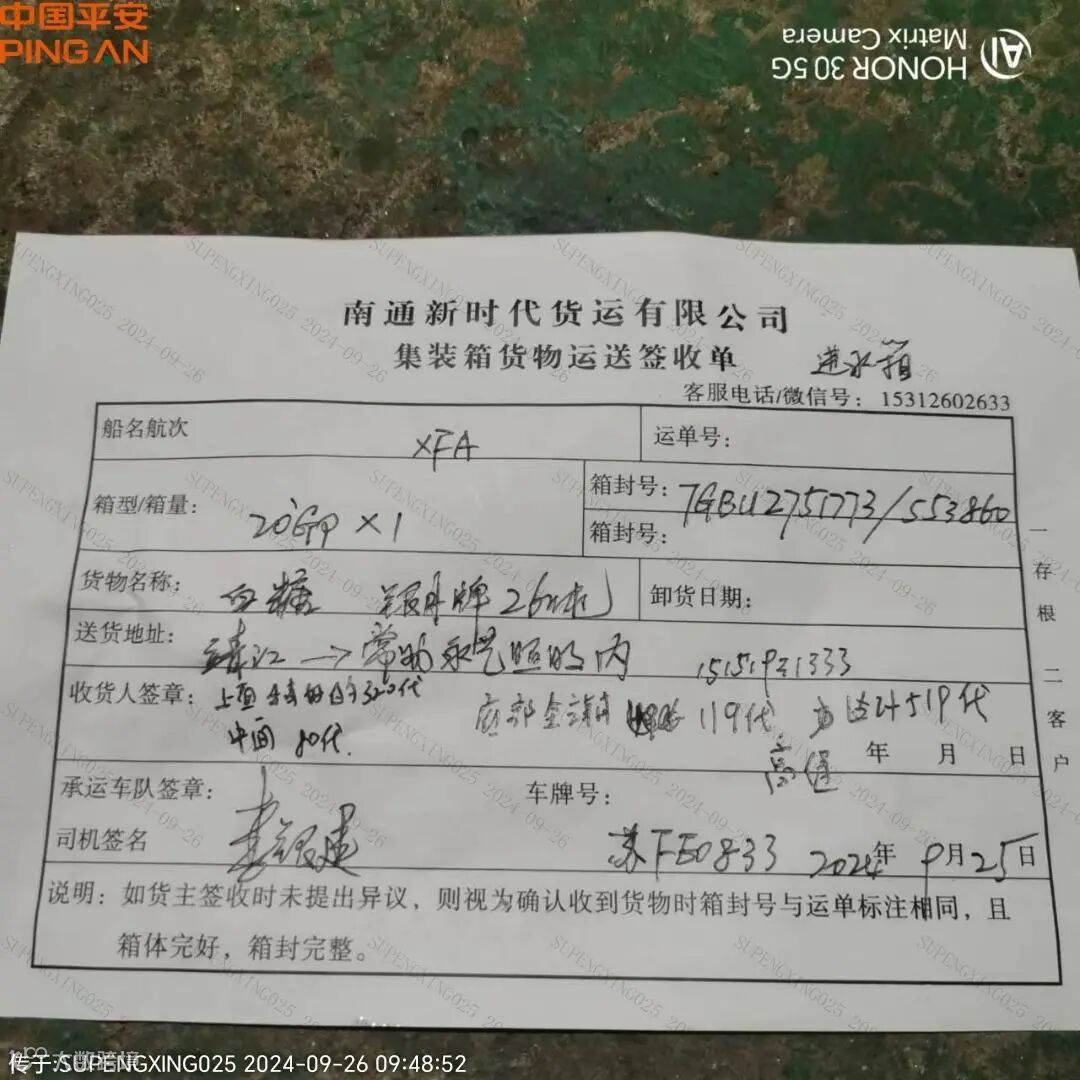 中国平安
PING AN
HONOR 30 5G
Matrix Camera
南通新时代货运有限公司
集装箱货物运送签收单
进水箱
客服电话/微信号：15312602633
船名航次 XFA
运单号：
箱型/箱量： 20'GP×1
箱封号：TGBU2751773/553860
箱封号：
货物名称： 白糖 牌 26
卸货日期：
送货地址： 靖江→常 照明内
收货人签章： 上面 320代
中间 80代.
底部全 119代
519代
高
年 月 日
承运车队签章：
车牌号：
司机签名
苏FE0833 2024年9月25日
说明：如货主签收时未提出异议，则视为确认收到货物时箱封号与运单标注相同，且
箱体完好，箱封完整。
一存根
二客户
SUPENGXING025 2024-09-26
传于:SUPENGXING025 2024-09-26 09:48:52